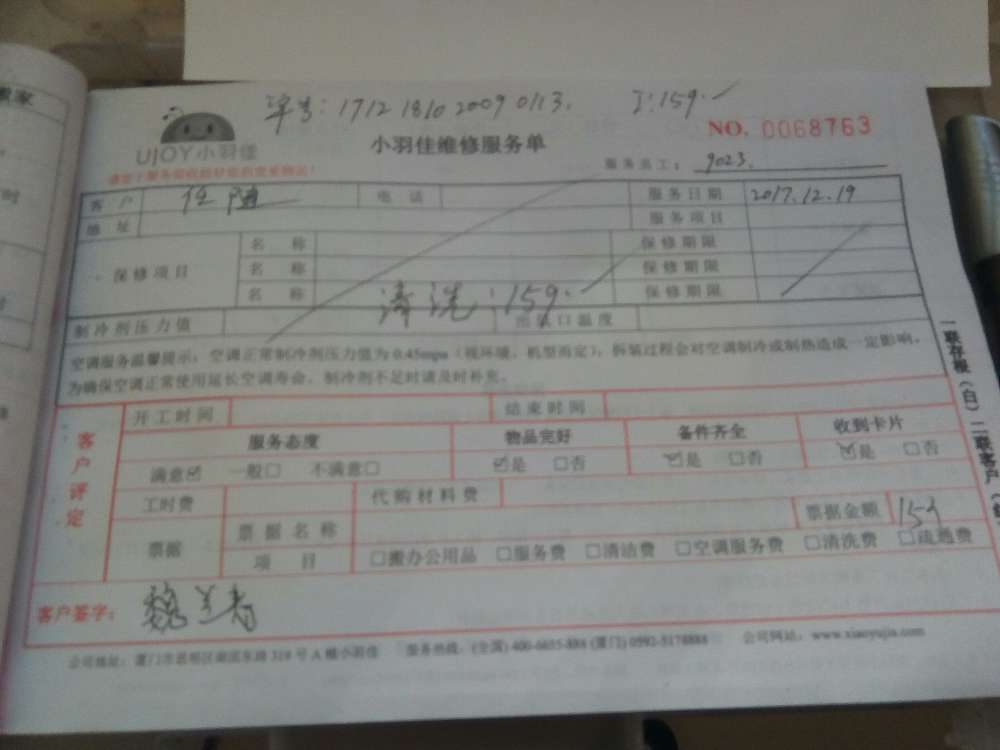 单号:1712 1810 2009 0113. J:159.
UJOY小羽佳
小羽佳维修服务单
NO. 0068763
服务员工: 9023.
客 户 任 电 话 服务日期 2017.12.19
地 址 服务项目
保修项目 名 称 保修期限
名 称 保修期限
名 称 保修期限
清洗:159.
制冷剂压力值 出风口温度
空调服务温馨提示:空调正常制冷剂压力值为0.45mpa(视环境、机型而定),拆装过程会对空调制冷或制热造成一定影响,
为确保空调正常使用延长空调寿命,制冷剂不足时请及时补充。
客户评定
开工时间 结束时间
服务态度 物品完好 备件齐全 收到卡片
满意☑ 一般□ 不满意□ ☑是 □否 ☑是 □否 ☑是 □否
工时费 代购材料费
票据 票据名称 票据金额
项 目 □搬办公用品 □服务费 □清洁费 □空调服务费 □清洗费 □疏通费
客户签字: 魏兰春
公司地址:厦门市思明区湖滨东路319号A幢小羽佳 服务热线:(全国)400-6655-884 (厦门)0592-5178888 公司网站:www.xiaoyujia.com
一联存根(白) 二联客户